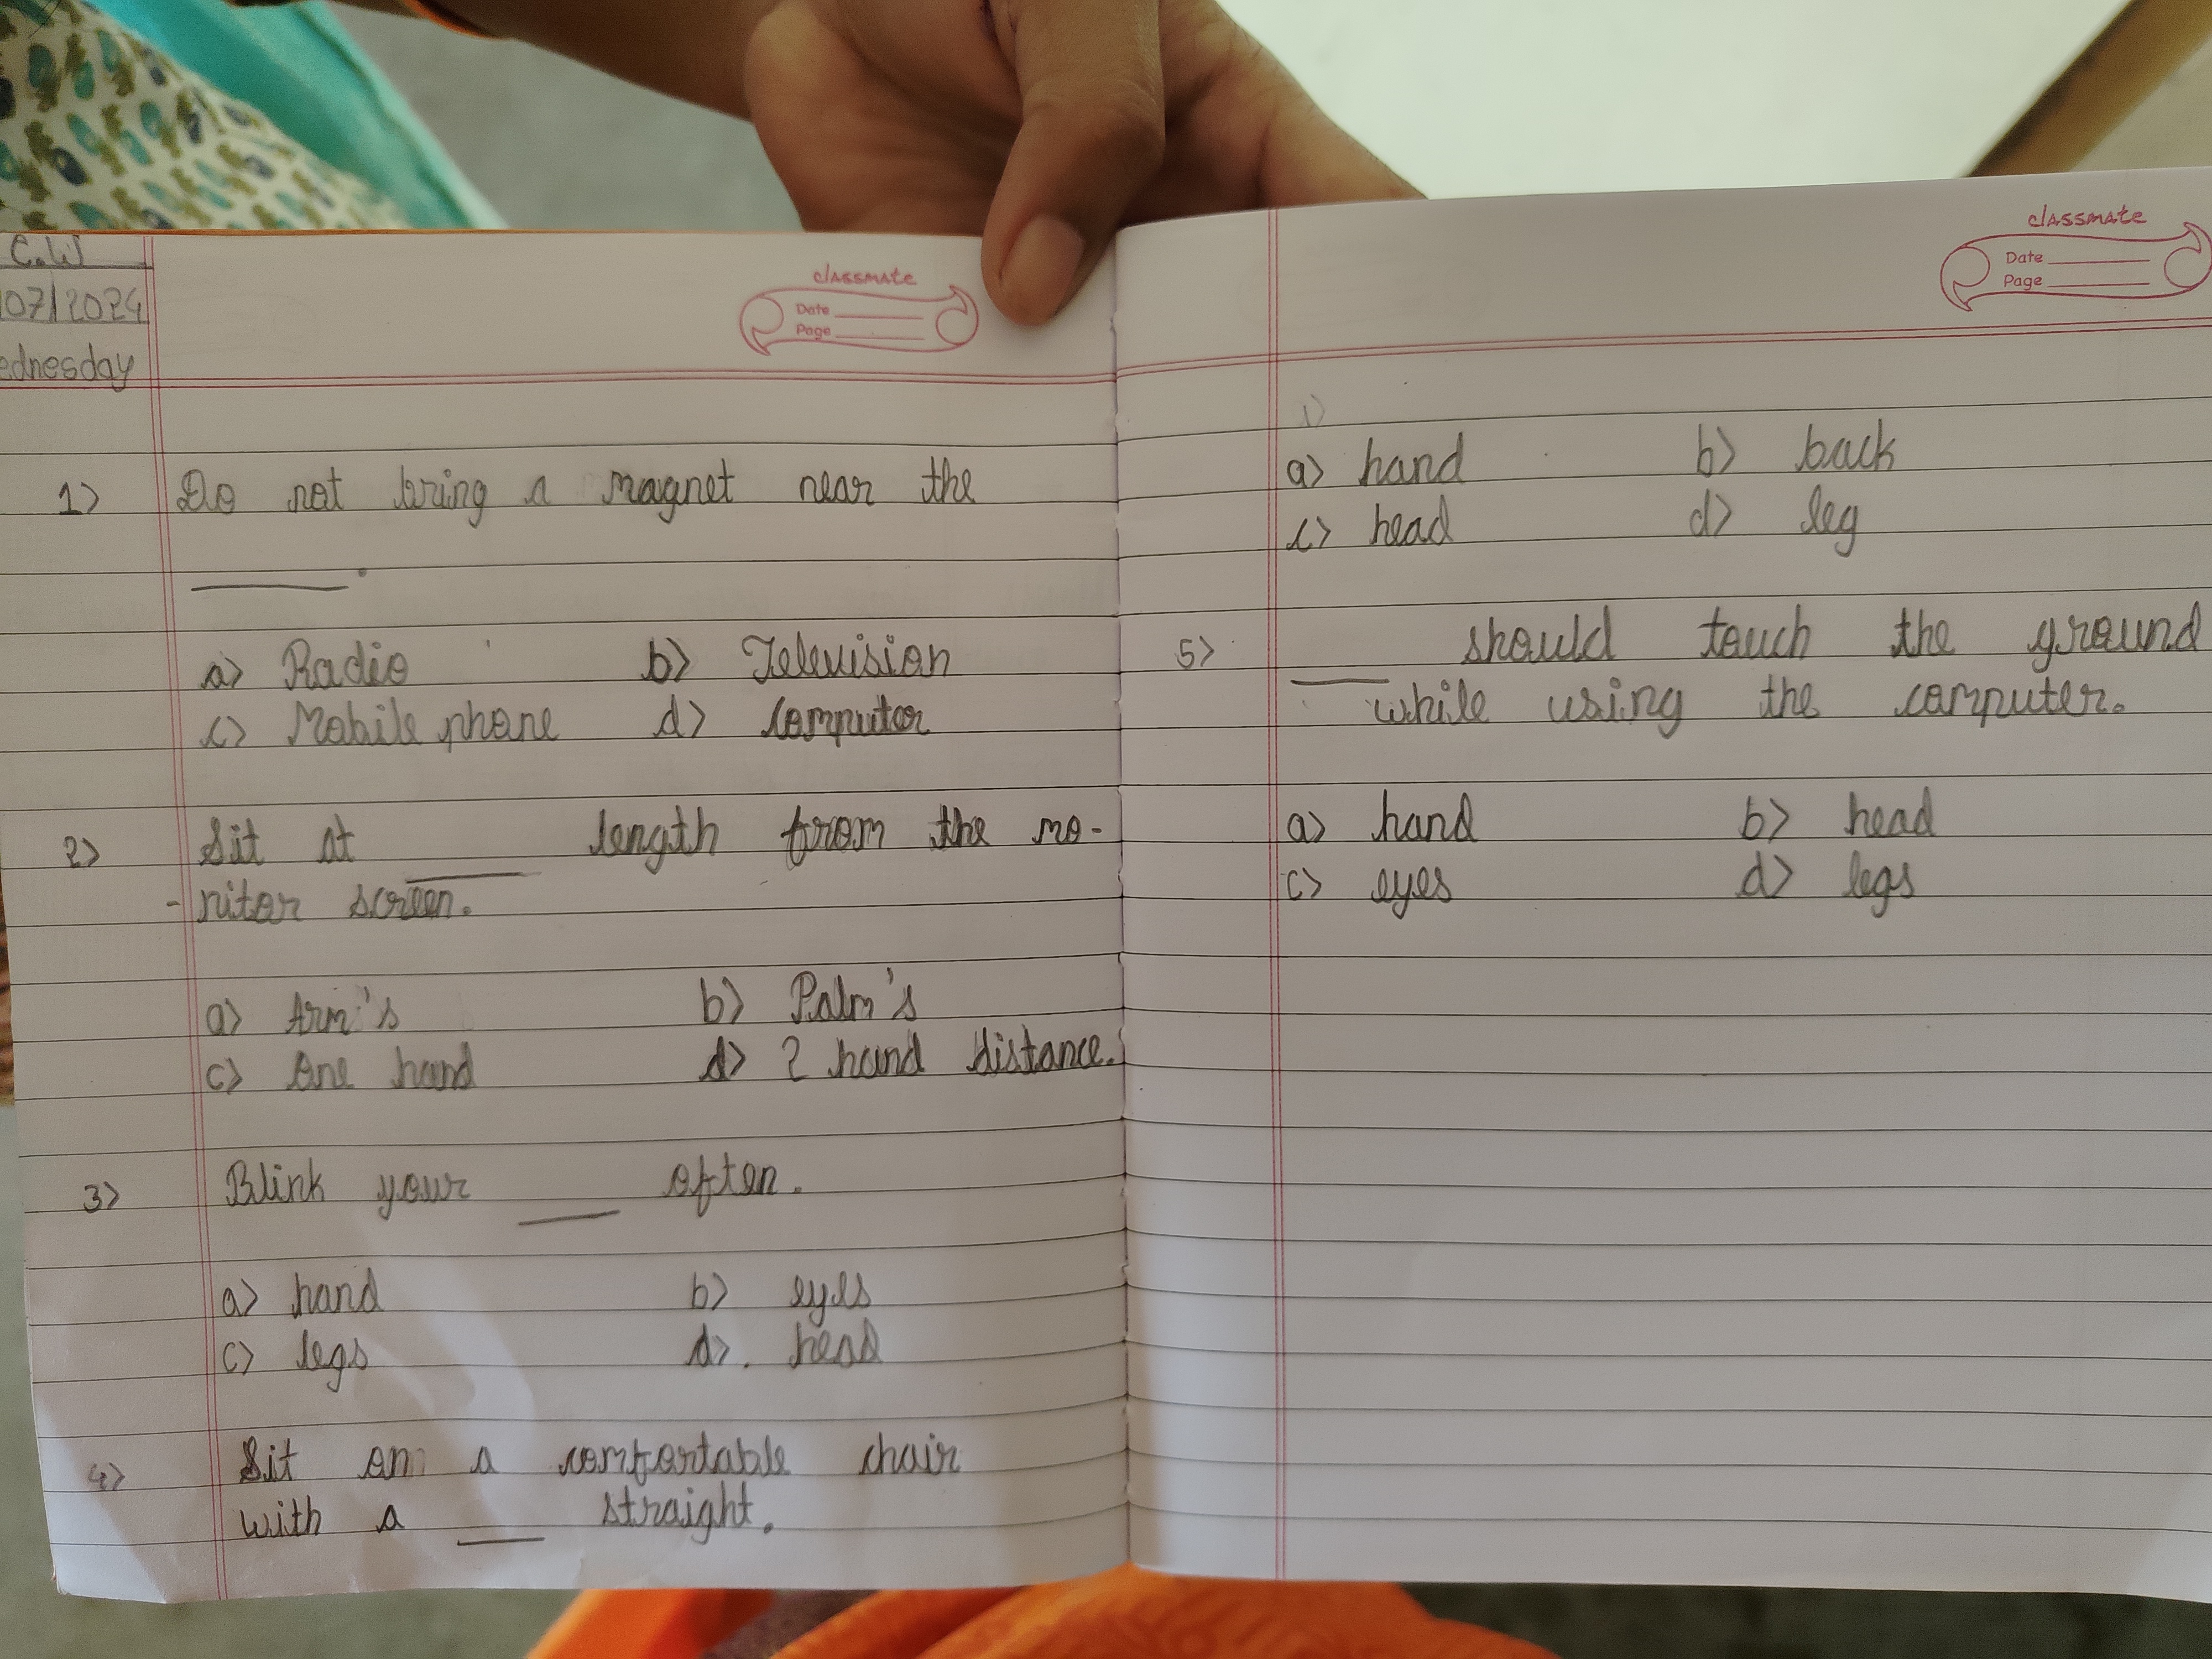 C.W
07/2024
ednesday
classmate
Date
Page
1) Do not bring a magnet near the
______.
a) Radio b) Television
c) Mobile phone d) computer
2) Sit at ______ length from the mo-
-nitor screen.
a) Arm's b) Palm's
c) One hand d) 2 hand distance.
3) Blink your ____ often.
a) hand b) eyes
c) legs d). head
4) Sit on a comfortable chair
with a ____ straight.
classmate
Date
Page
1)
a) hand b) back
c) head d) leg
5) ____ should touch the ground
while using the computer.
a) hand b) head
c) eyes d) legs